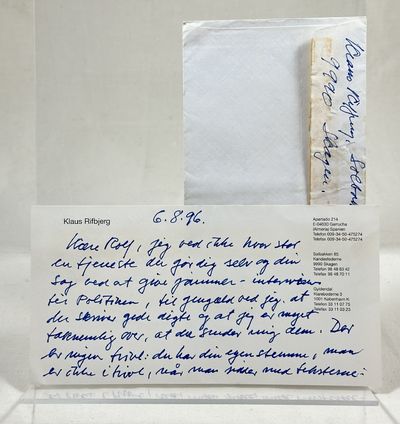 Klaus Rifbjerg, Solbak
9990 Skagen.
Klaus Rifbjerg
6.8.96.
Apartado 214
E-04630 Garrucha
(Almeria) Spanien
Telefon 009-34-50-475274
Telefax 009-34-50-475274
Solbakken 85
Kandestederne
9990 Skagen
Telefon 98 48 60 42
Telefax 98 48 70 11
Gyldendal
Klareboderne 3
1001 København K
Telefon 33 11 07 75
Telefax 33 11 03 23
Kære Rolf, jeg ved ikke hvor stor
en tjeneste du gør dig selv og din
sag ved at give jammer-interviews
til Politiken, til gengæld ved jeg, at
du skriver gode digte og at jeg er meget
taknemlig over, at du sender mig dem. Der
er ingen tvivl: du har din egen stemme, man
er ikke i tvivl, når man sidder med teksterne: